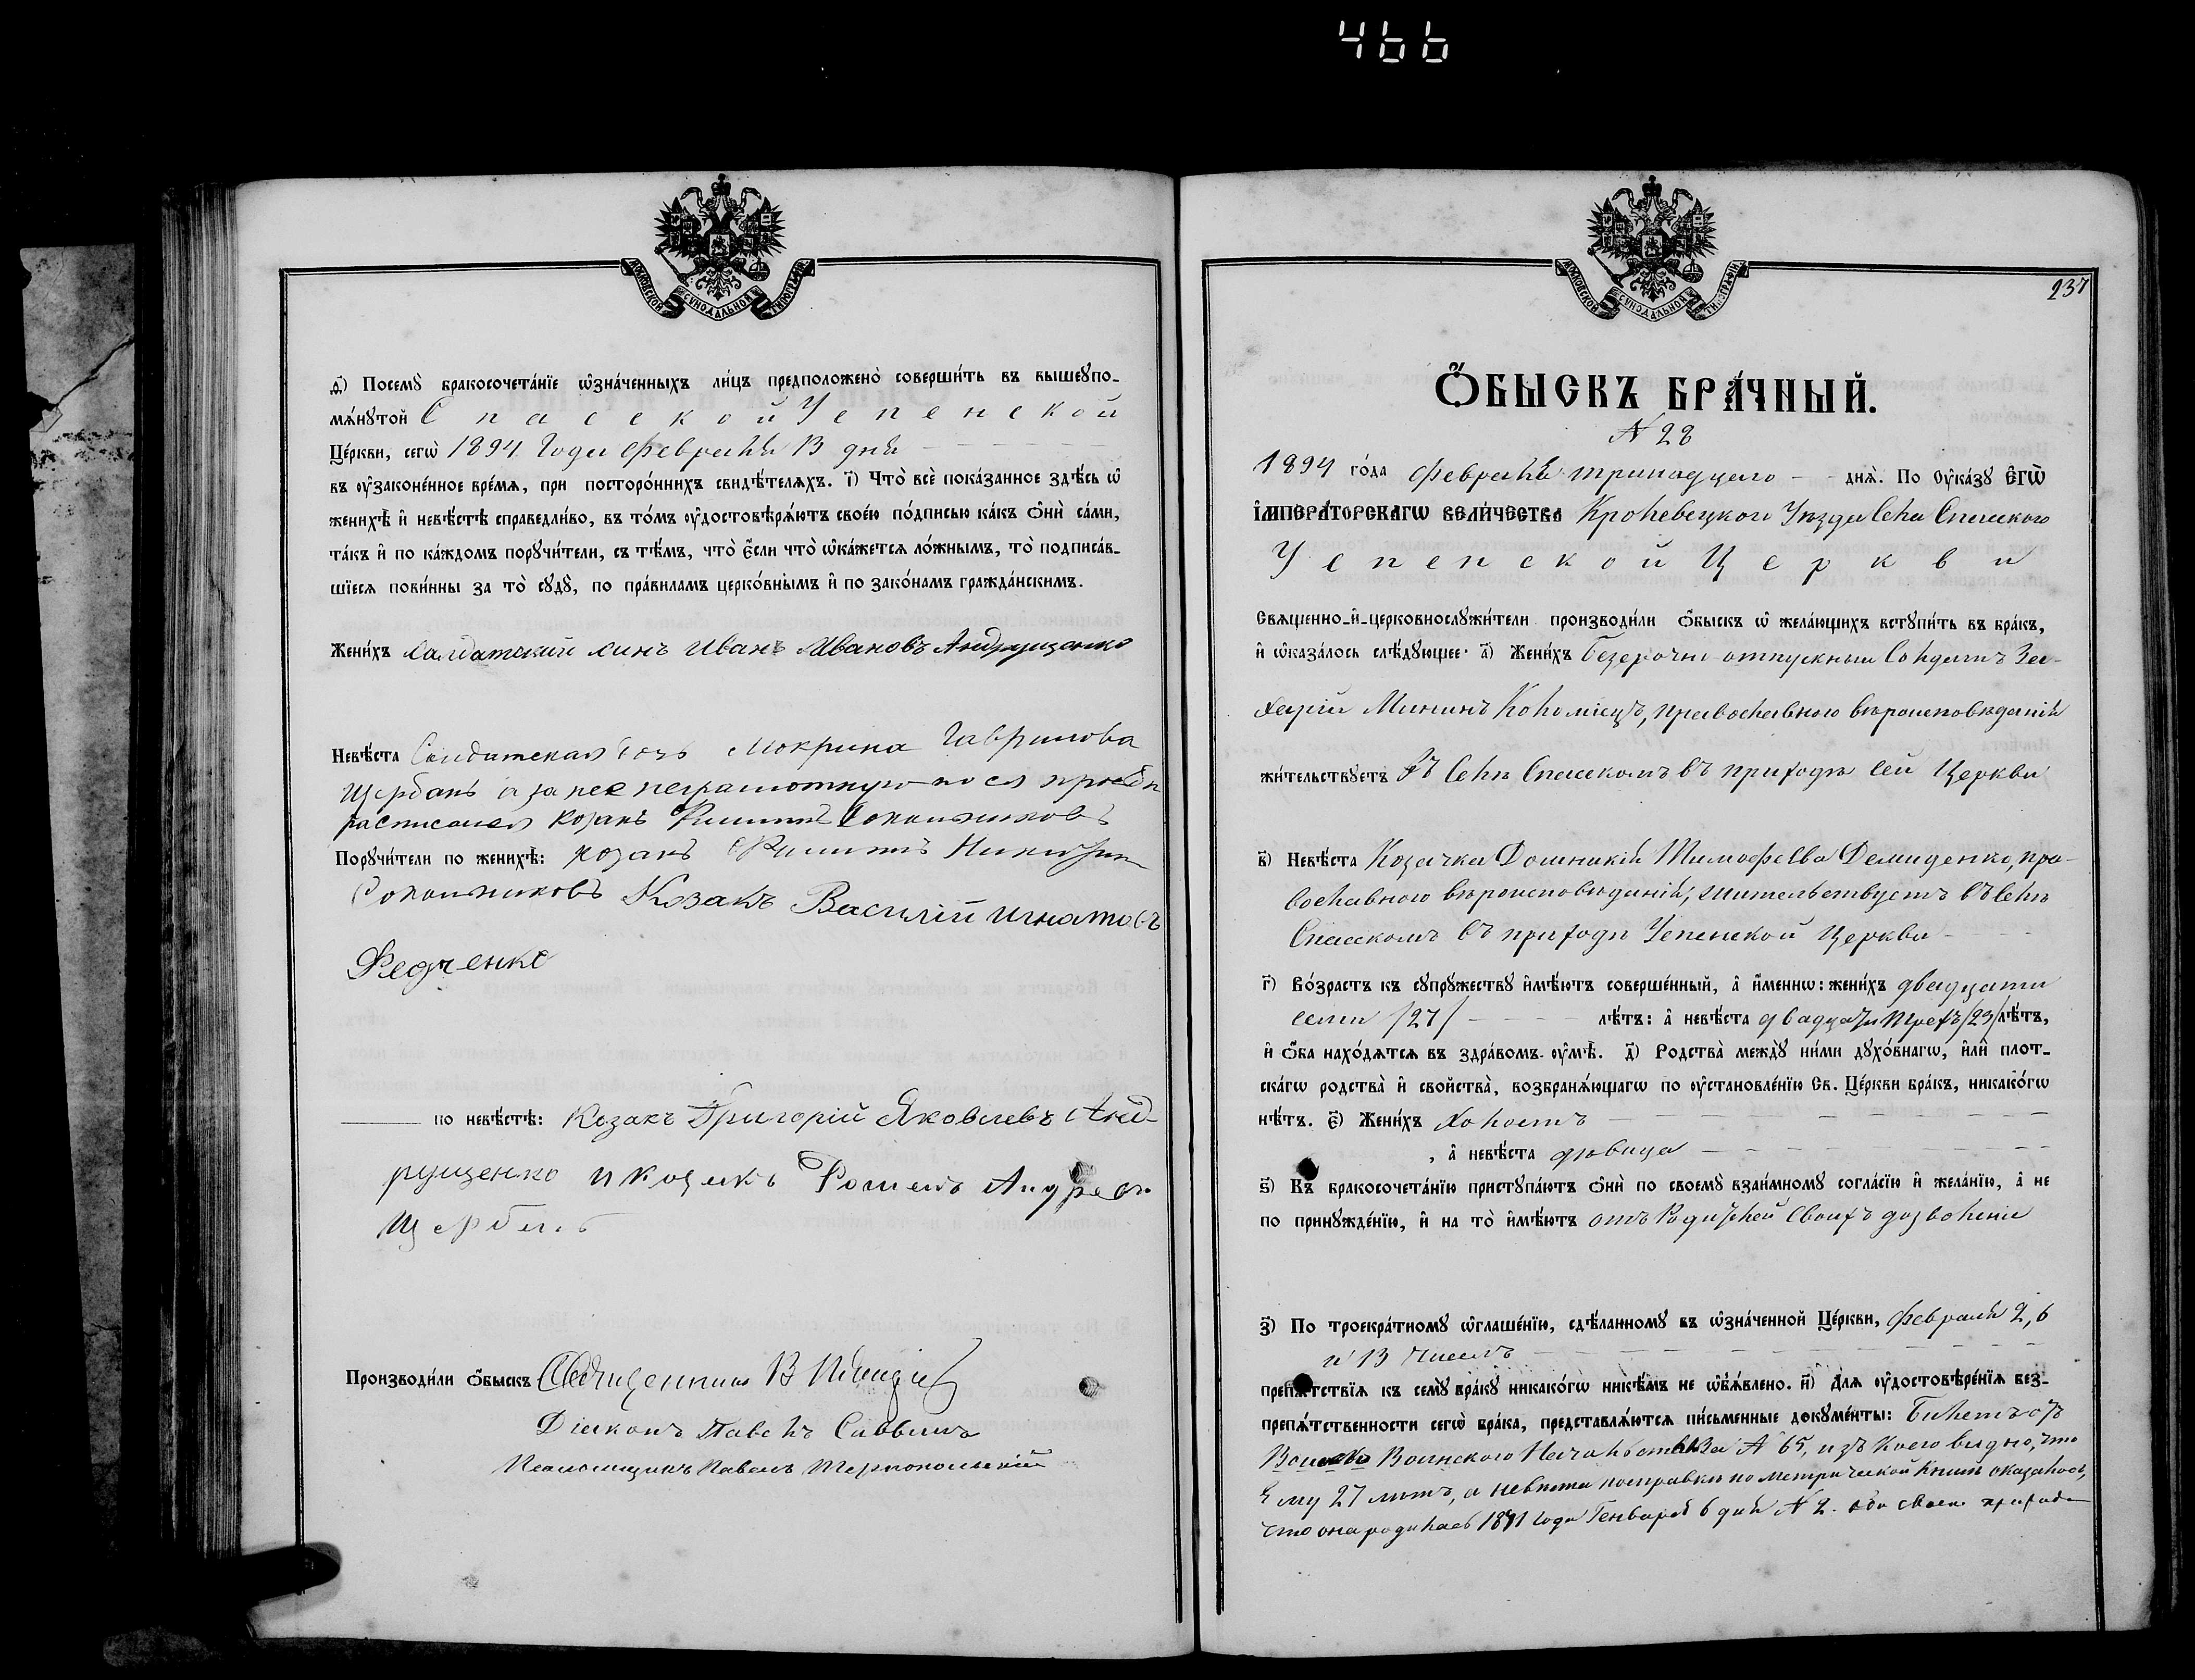 466
МОСКОВСКОЙ СѴНОДАЛЬНОЙ ТИПОГРАФІИ
ѳ҃) Посемꙋ̀ бракосочета́нїе ѡ҆зна́ченныхъ ли́цъ предположено̀ соверши́ть въ вышеꙋпо-
мѧ́нꙋтой Спасской Успенской
Це́ркви, сегѡ̀ 1894 Года Февраля 13 дня
въ ᲂу҆законе́нное вре́мѧ, при посторо́ннихъ свидѣ́телѧхъ. і҃) Что̀ всѐ пока́занное здѣ́сь ѡ҆
женихѣ̀ и҆ невѣ́стѣ справедли́во, въ то́мъ ᲂу҆достовѣрѧ́ютъ свое́ю по́дписью ка́къ ѻ҆нѝ са́ми,
та́къ и҆ по ка́ждомъ порꙋчи́тели, съ тѣ́мъ, что̀ є҆́сли что̀ ѡ҆ка́жетсѧ ло́жнымъ, то̀ подписа́в-
шїесѧ пови́нны за то̀ сꙋдꙋ̀, по пра́виламъ церко́внымъ и҆ по зако́намъ гражда́нскимъ.
Жени́хъ салдатский синъ Иванъ Ивановъ Андрущенко
Невѣ́ста Солдатская дочь Мокрина Гаврилова
Щербакъ а за нее неграмотную по ея просьбѣ
расписался козакъ Филиппъ Сокольниковъ
Порꙋчи́тели по женихѣ̀: козакъ Филиппъ
Сокольниковъ Козакъ Василій Игнатовъ
Федченко
по невѣ́стѣ: Козакъ Григорій Яковлевъ Анд-
рущенко и козакъ Романъ Андреевъ
Щербакъ
Производи́ли ѻ҆́быскъ Священникъ В
Діаконъ Павелъ Саввинъ
Псаломщикъ Павелъ Тернопольскій
МОСКОВСКОЙ СѴНОДАЛЬНОЙ ТИПОГРАФІИ
237
Ѻ҆́БЫСКЪ БРА́ЧНЫЙ.
N 28
1894 го́да Февраля тринадцаго днѧ̀. По ᲂу҆ка́зꙋ Є҆ГѠ̀
І҆МПЕРА́ТОРСКАГѠ ВЕЛИ́ЧЕСТВА Кролевецкого Уѣзда Села Спасского
Успенской Церкви
Свѧщенно-и҆-церковнослꙋжи́тели производи́ли ѻ҆́быскъ ѡ҆ жела́ющихъ встꙋпи́ть въ бра́къ,
и҆ ѡ҆каза́лось слѣ́дꙋющее: а҃) Жени́хъ безсрочно-отпускный Солдатъ За-
харій Мининъ Коломіецъ, православного вѣроисповѣданія
жи́тельствꙋетъ въ Селѣ Спасскомъ въ приходѣ сей Церкви
в҃) Невѣ́ста Козачка Домникія Тимофѣева Демиденко, пра-
вославного вѣроисповѣданія, жительствуетъ въ Селѣ
Спасскомъ въ приходѣ Успенской Церкви
г҃) Во́зрастъ къ сꙋпрꙋ́жествꙋ и҆мѣ́ютъ соверше́нный, а҆ и҆́меннѡ: жени́хъ двадцати
семи /27/ лѣ́тъ: а҆ невѣ́ста двадцати трехъ /23/ лѣ́тъ,
и҆ ѻ҆́ба нахо́дѧтсѧ въ здра́вомъ ᲂу҆мѣ̀. д҃) Родства̀ междꙋ̀ ни́ми дꙋхо́внагѡ, и҆лѝ плот-
ска́гѡ родства̀ и҆ свойства̀, возбранѧ́ющагѡ по ᲂу҆становле́нїю Св. Це́ркви бра́къ, никако́гѡ
нѣ́тъ. є҃) Жени́хъ холостъ
, а҆ невѣ́ста дѣвица
ѕ҃) Къ бракосочета́нїю пристꙋпа́ютъ ѻ҆нѝ по своемꙋ̀ взаи́мномꙋ согла́сїю и҆ жела́нїю, а҆ не
по принꙋжде́нїю, и҆ на то̀ и҆мѣ́ютъ отъ Родителей своихъ дозволеніе
з҃) По троекра́тномꙋ ѡ҆глаше́нїю, сдѣ́ланномꙋ въ ѡ҆зна́ченной Це́ркви, Февраля 2, 6
и 13 числъ
препѧ́тствїѧ къ семꙋ̀ бра́кꙋ никако́гѡ никѣ́мъ не ѡ҆б̾ѧ́влено. и҃) Длѧ ᲂу҆достовѣре́нїѧ без-
препѧ́тственности сегѡ̀ бра́ка, представлѧ́ютсѧ пи́сьменные докꙋме́нты: Билетъ отъ
Воинского Начальства за N 65, изъ коего видно, что
ему 27 лѣтъ, а невѣста по справки по метрической книги оказалось,
что она родилась 1871 года Генваря 6 дня N 2.